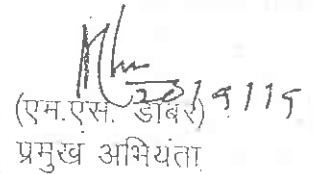 20/9/15
(एम.एस. डाबर)
प्रमुख अभियंता